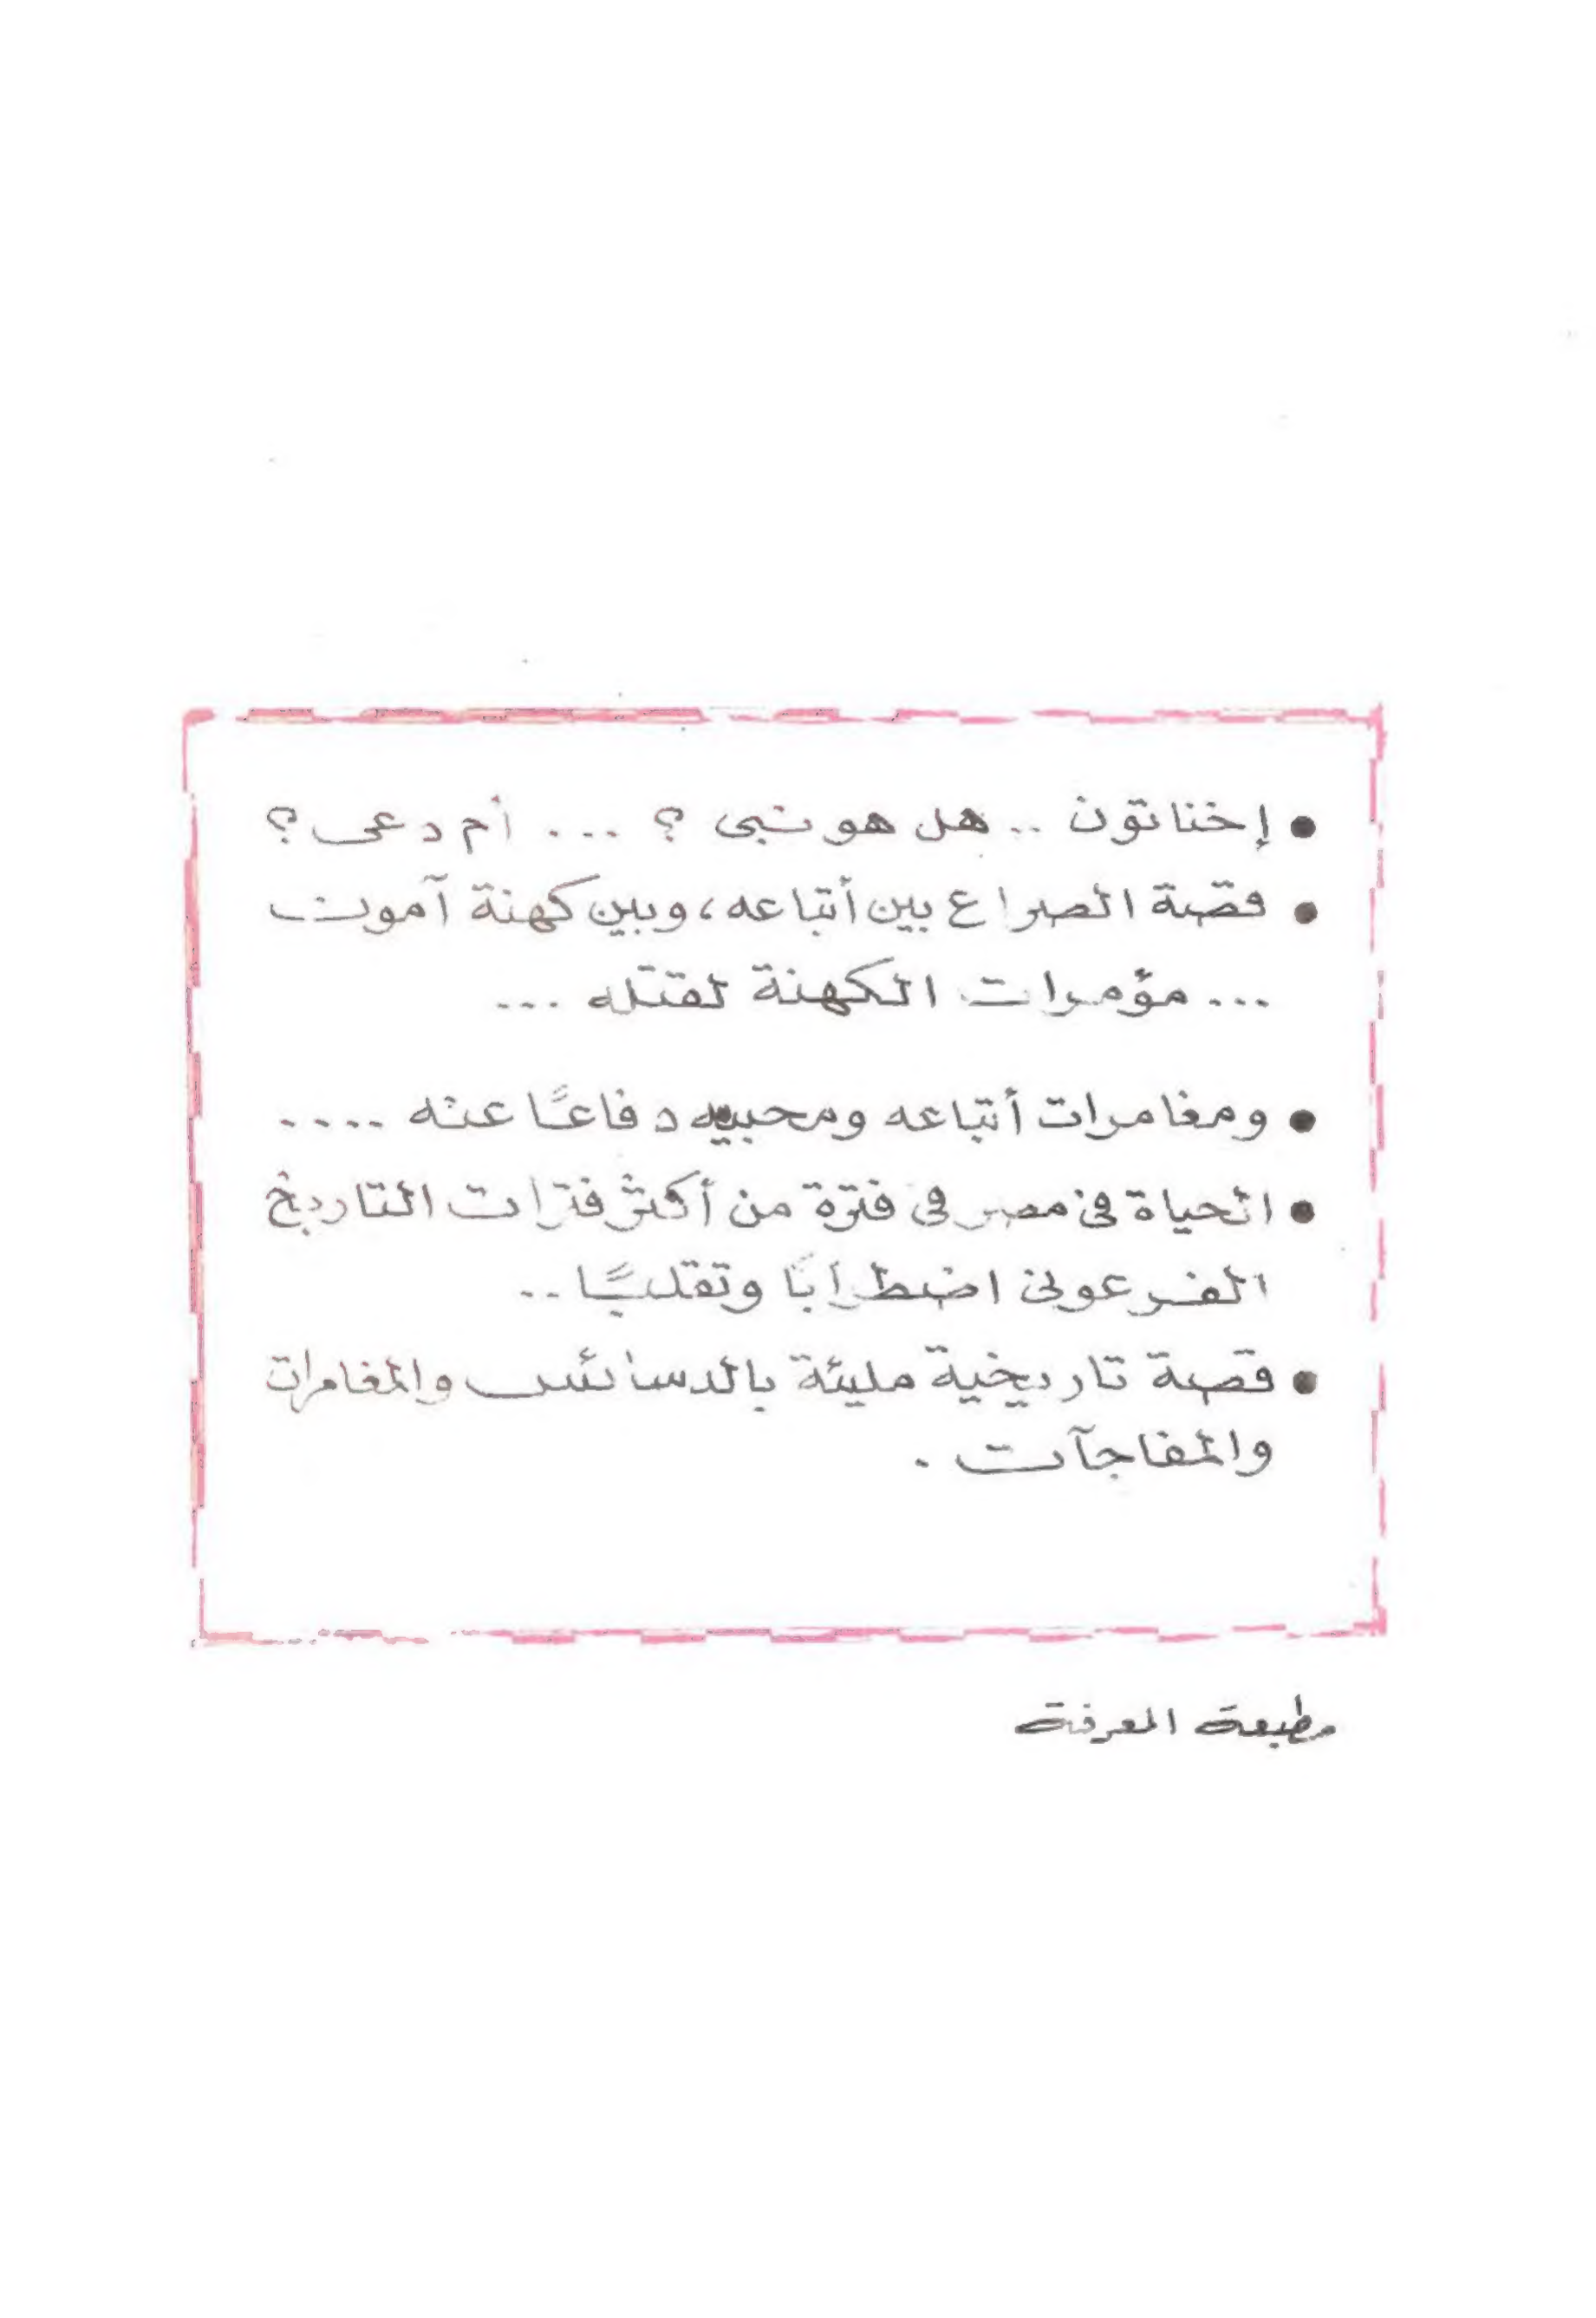 • إخناتون .. هل هو نبى ؟ ... أم دعى ؟
• قصة الصراع بين أتباعه، وبين كهنة آمون
... مؤمرات الكهنة لقتله ...
• ومغامرات أتباعه ومحبيه دفاعًا عنه ....
• الحياة فى مصر فى فترة من أكثر فترات التاريخ
الفرعونى اضطرابًا وتقلبًا ..
• قصة تاريخية مليئة بالدسائس والمغامرات
والمفاجآت .
مطبعة المعرفة